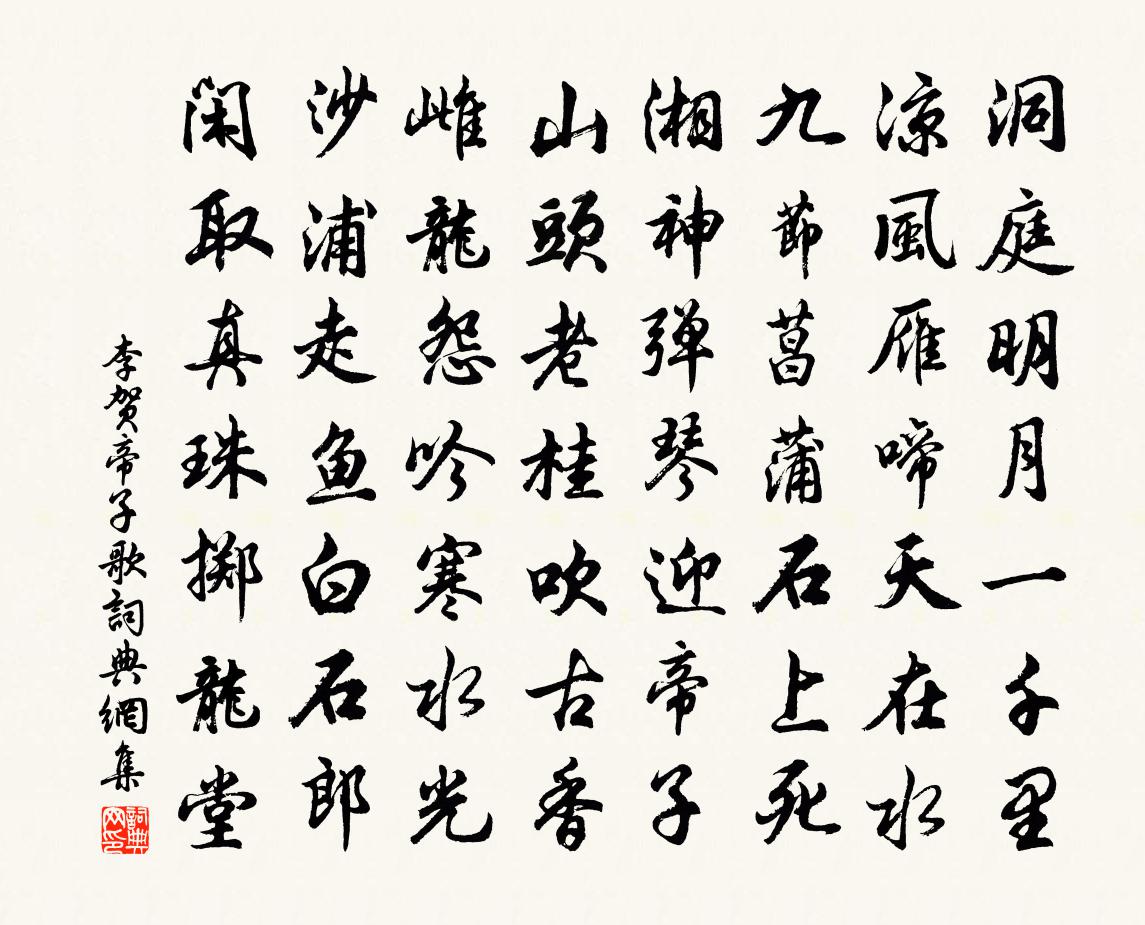 洞庭明月一千里
涼風雁啼天在水
九節菖蒲石上死
湘神彈琴迎帝子
山頭老桂吹古香
雌龍怨吟寒水光
沙浦走魚白石郎
閑取真珠擲龍堂
李賀帝子歌詞典網集
詞典網印